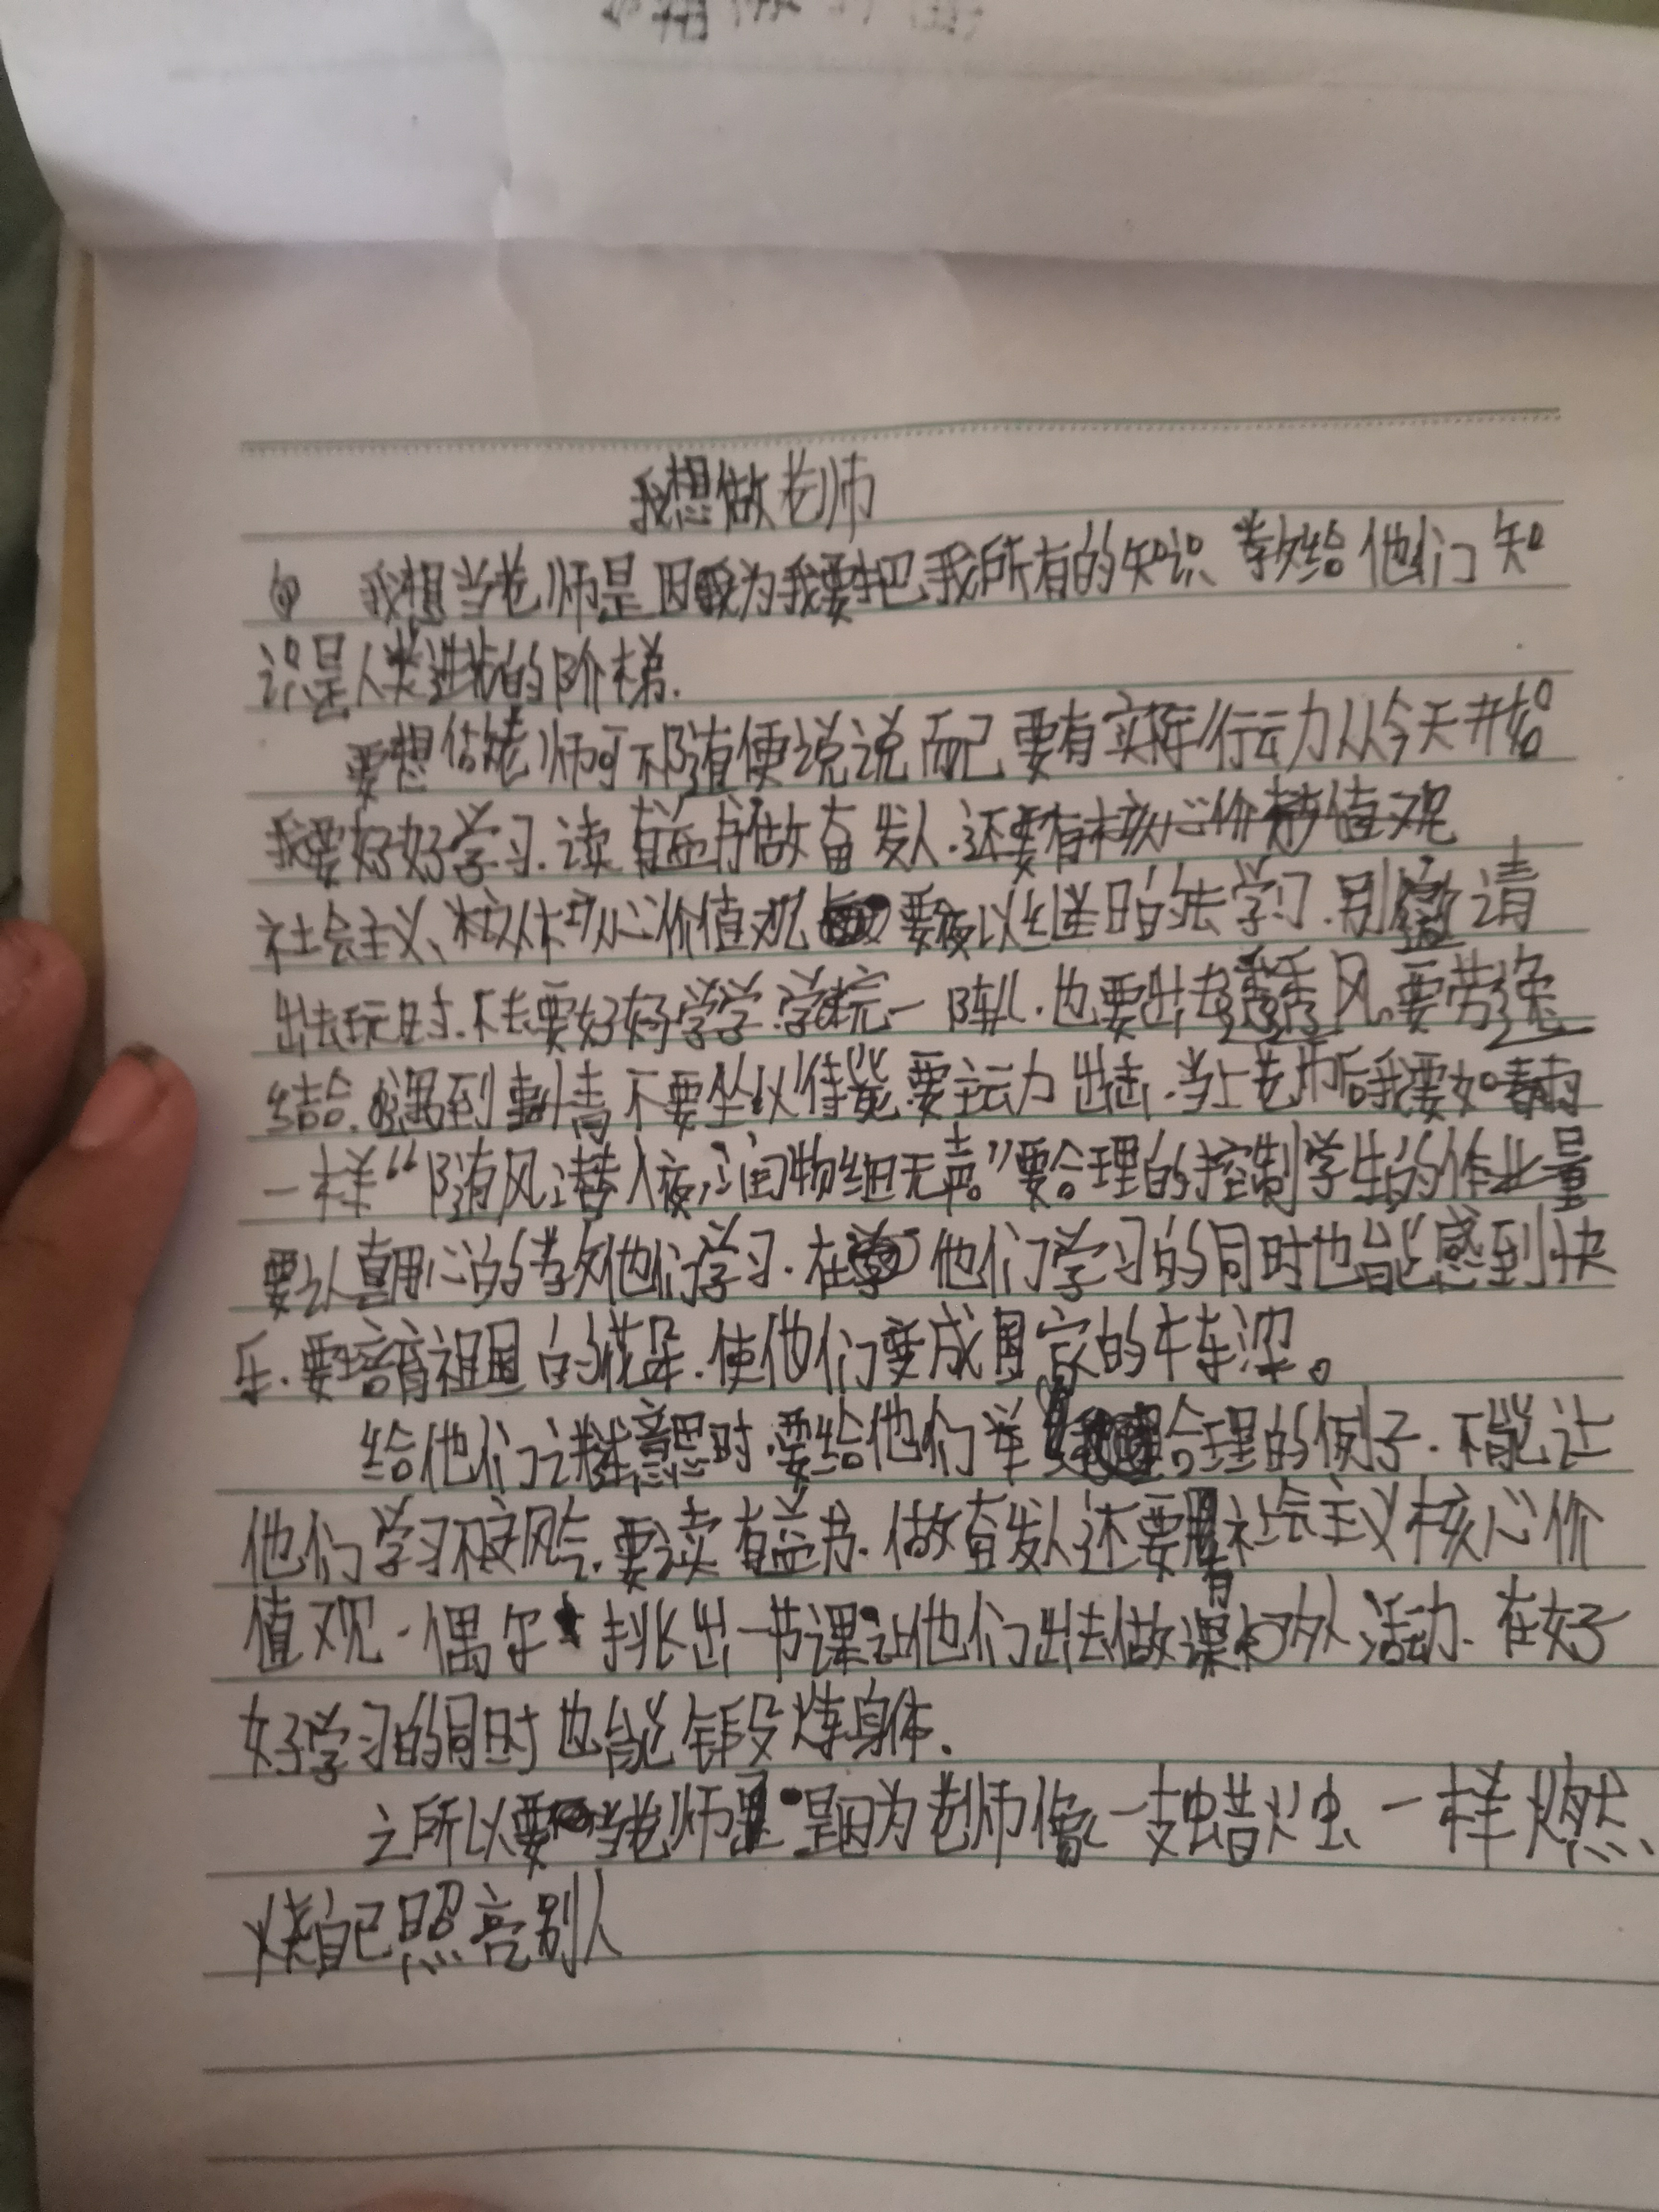 我想做老师
我想当老师是因为我要把我所有的知识、教给他们知
识是人类进步的阶梯.
要想做老师可不随便说说而已要有实际行动力从今天开始
我要好好学习.读有益书做奋发人.还要有核心价值观
社会主义、核心价值观要夜以继日的去学习.别人邀请
出去玩时.不去要好好学学学玩一阵儿.也要出去透透风.要劳逸
结合.遇到事情不要坐以待毙.要主动出击.当上老师后我要如春雨
一样“随风潜入夜,润物细无声。”要合理的控制学生的作业量
要认真用心的教他们学习.在他们学习的同时也能感到快
乐.要培育祖国的花朵.使他们变成国家的栋梁。
给他们讲意思时.要给他们举合理的例子.不能让
他们学习不良风气.要读有益书.做奋发人还要有社会主义核心价
值观.偶尔挑出一节课让他们出去做课外活动.在好
好学习的同时也能锻炼身体.
之所以要当老师是因为老师像一支蜡烛一样燃
烧自己照亮别人